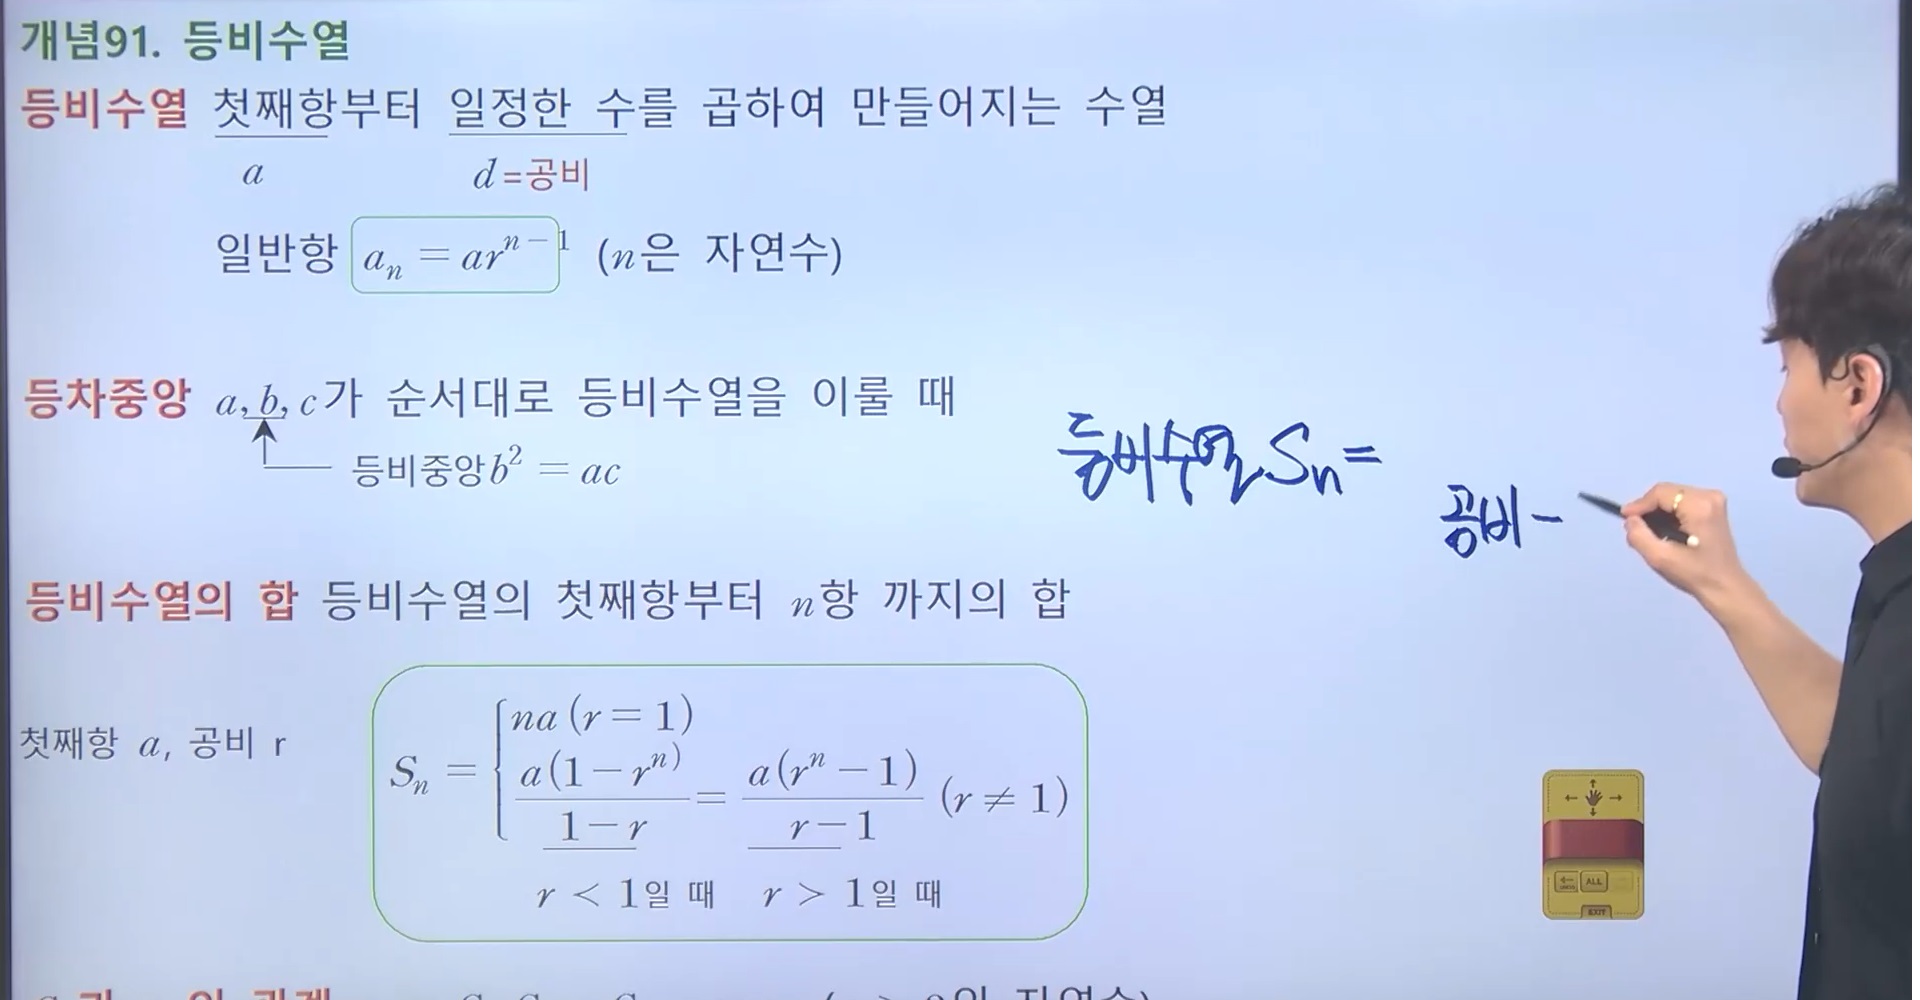 개념91. 등비수열
등비수열 첫째항부터 일정한 수를 곱하여 만들어지는 수열
a d=공비
일반항 aₙ = arⁿ⁻¹ (n은 자연수)
등차중앙 a, b, c가 순서대로 등비수열을 이룰 때
등비중앙 b² = ac
등비수열 Sₙ =
공비 -
등비수열의 합 등비수열의 첫째항부터 n항 까지의 합
첫째항 a, 공비 r
Sₙ = { na (r = 1)
a(1-rⁿ)/(1-r) = a(rⁿ-1)/(r-1) (r ≠ 1)
r < 1일 때 r > 1일 때
ALL
EXIT